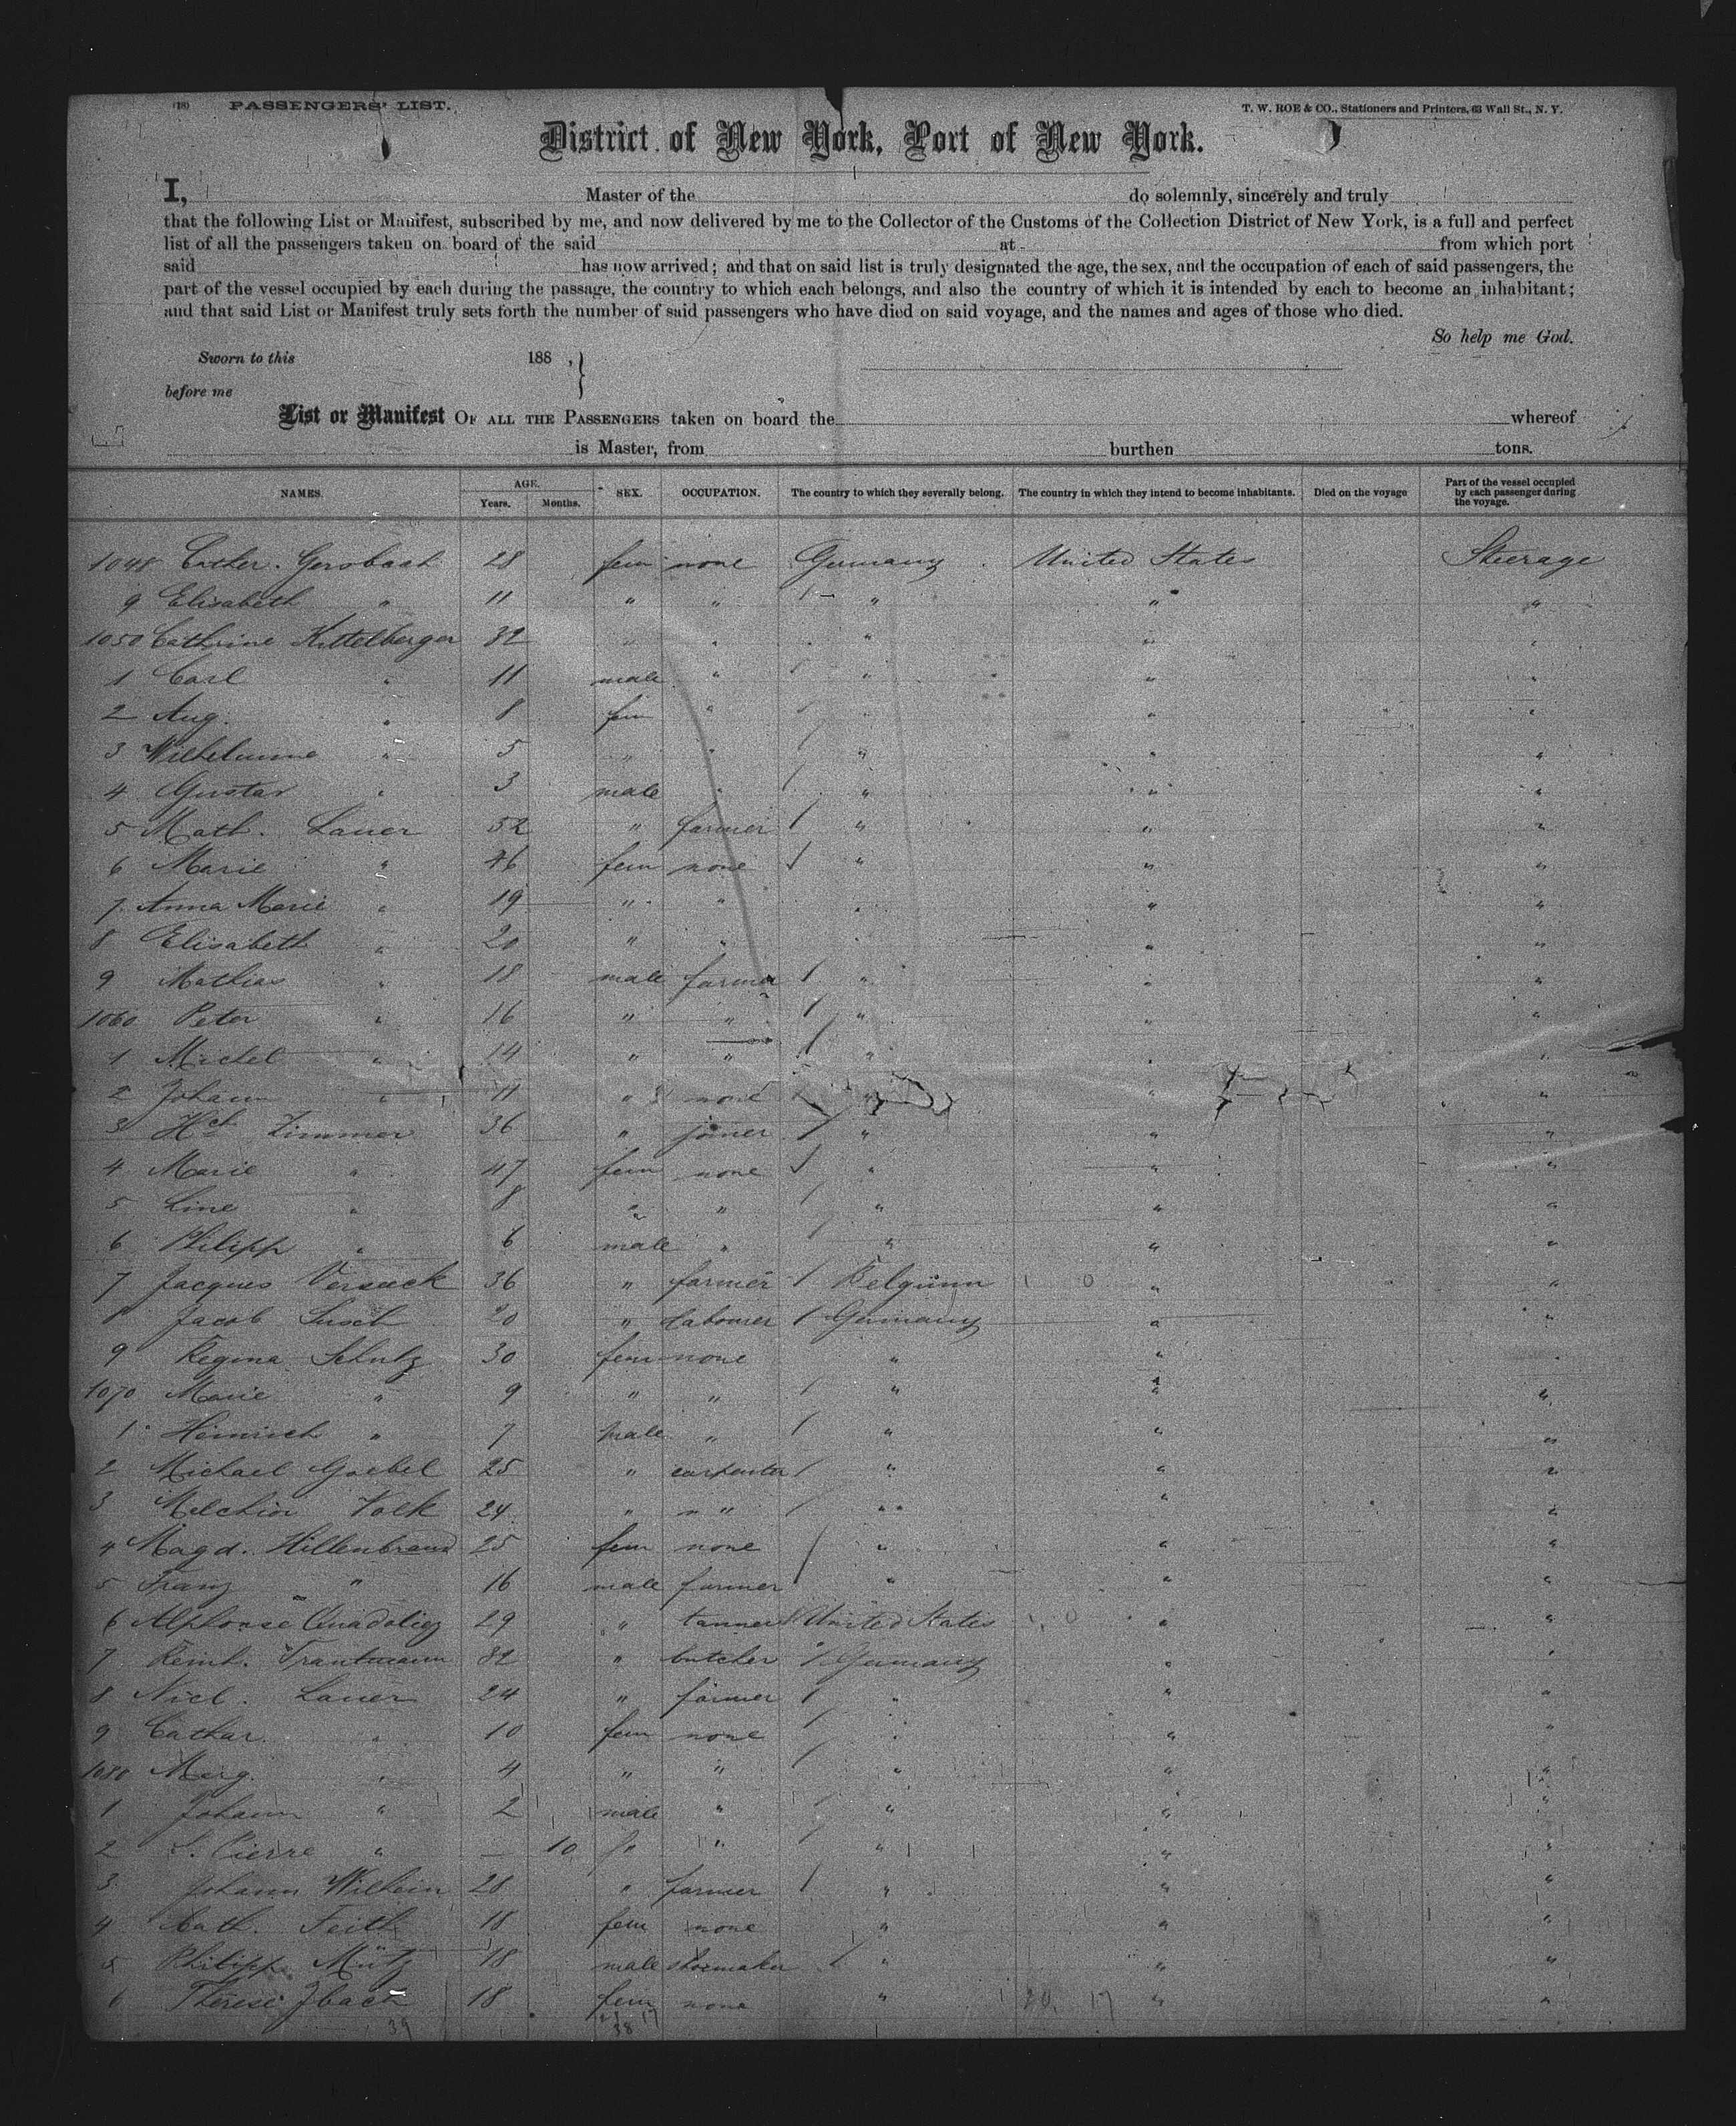 (18) PASSENGERS' LIST.
T. W. ROE & CO., Stationers and Printers, 63 Wall St., N. Y.
District of New York, Port of New York.
I, Master of the do solemnly, sincerely and truly
that the following List or Manifest, subscribed by me, and now delivered by me to the Collector of the Customs of the Collection District of New York, is a full and perfect
list of all the passengers taken on board of the said at from which port
said has now arrived; and that on said list is truly designated the age, the sex, and the occupation of each of said passengers, the
part of the vessel occupied by each during the passage, the country to which each belongs, and also the country of which it is intended by each to become an inhabitant;
and that said List or Manifest truly sets forth the number of said passengers who have died on said voyage, and the names and ages of those who died.
So help me God.
Sworn to this 188 ,
before me
List or Manifest OF ALL THE PASSENGERS taken on board the whereof
is Master, from burthen tons.
NAMES. AGE. Years. Months. SEX. OCCUPATION. The country to which they severally belong. The country in which they intend to become inhabitants. Died on the voyage Part of the vessel occupied by each passenger during the voyage.
1048 Gersbach 28 fem none Germany United States Steerage
9 Elisabeth " 11 " " " " "
1050 Cathrine Kittelberger 32 " " " " "
1 Carl " 11 male " " " "
2 Aug. " 8 fem " " " "
3 Wilhelmine " 5 " " " " "
4 Gustav " 3 male " " " "
5 Math. Lauer 52 " farmer " " "
6 Marie " 46 fem none " " "
7 Anna Marie " 19 " " " " "
8 Elisabeth " 20 " " " " "
9 Mathias " 18 male farmer " " "
1060 Peter " 16 " " " " "
1 Michel " 14 " " " " "
2 Johann " 11 " none " " "
3 Hch Zimmer 36 " joiner " " "
4 Marie " 47 fem none " " "
5 Line " 8 " " " " "
6 Philipp " 6 male " " " "
7 Jacques 36 " farmer Belgium " "
8 Jacob 20 " labourer Germany " "
9 Regina Schutz 30 fem none " " "
1070 Marie " 9 " " " " "
1 Heinrich " 7 male " " " "
2 Michael Goebel 25 " carpenter " " "
3 Melchior Volk 24 " " " " " "
4 Magd. Hillenbrand 25 fem none " " "
5 Franz " 16 male farmer " " "
6 Alphonse 29 " tanner United States " "
7 Reinh. Trautmann 32 " butcher Germany " "
8 Nicl. Lauer 24 " farmer " " "
9 Cathar. " 10 fem none " " "
1080 Marg. " 4 " " " " "
1 Johann " 2 male " " " "
2 Pierre " — 10 " " " " "
3 Johann 28 " farmer " " "
4 Cath. Feith 18 fem none " " "
5 Philipp Mütz 18 male shoemaker " " "
6 Therese Ibach 18 fem none " " "
39 38 17